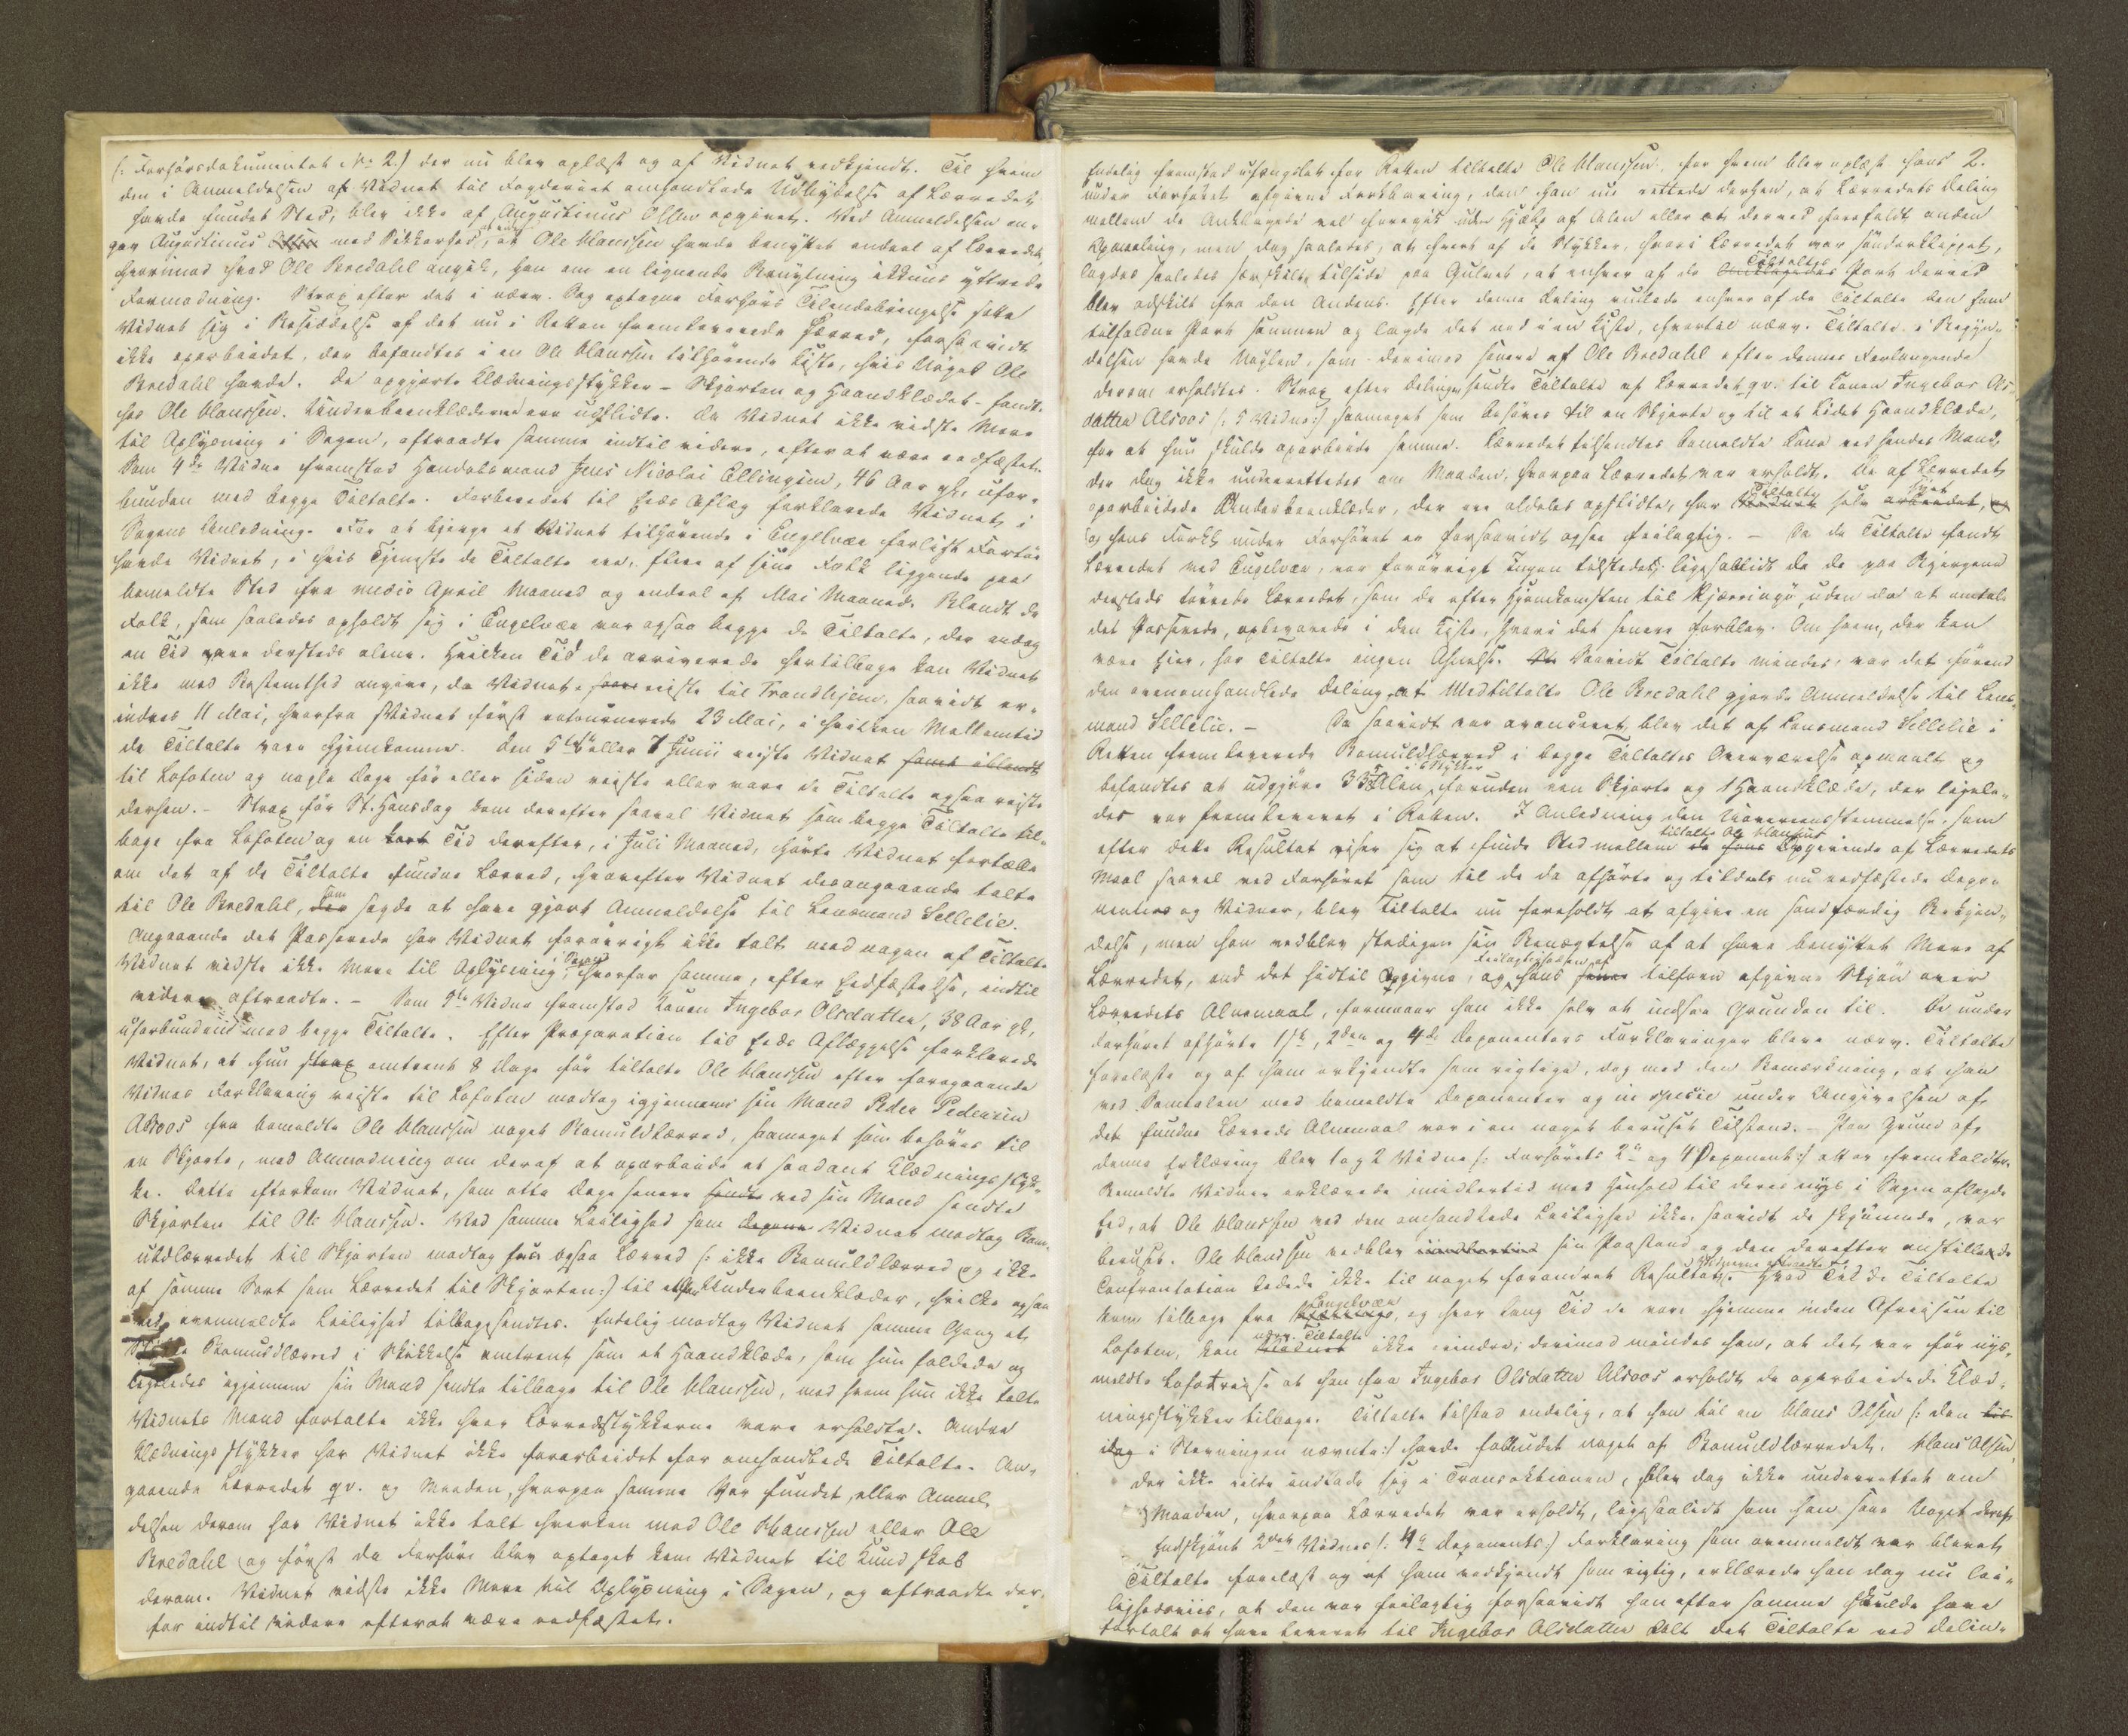 (: Forhørsdokumentet No 2.) der nu blev oplæst og af Vidnet vedkjendt. Til hvem
den i Anmeldelsen af Vidnet til Fogderiet omhandlede Udbydelse af Lærredet
havde fundet Sted, blev ikke af Augustinus Olsen opgivet. Ved Anmeldelsen an-
gav Augustinus Olsen med Sikkerhed, at Ole Clausen havde benyttet endeel af Lærredet,
hvorimod hvad Ole Bredahl angik, han om en lignende Benyttning ikkuns yttrede
Formodning. Strax efter det i nærv. Sag optagne Forhørs Tilendebringelse satte
Vidnet sig i Besiddelse af det nu i Retten fremleverede Lærred, forsaavidt
ikke oparbeidet, der befandtes i en Ole Clausen tilhørende Kiste, hvis Nøgel Ole
Bredahl havde. De opgjorte Klædningsstykker - Skjorten og Haandklædet - fandt
hos Ole Claussen. Underbeenklæderne ere udslidte. Da Vidnet ikke vidste Mere
til Oplysning i Sagen, aftraadte samme indtil videre, efter at være eedfæstet.
Som 4de Vidne fremstod Handelsmand Jens Nicolai Ellingsen, 46 Aar gl., ufor-
bunden med begge Tiltalte. Forberedet til Eeds Aflæg forklarede Vidnet i
Sagens Anledning. For at bjerge et Vidnet tilhørende i Engelvær forlist Fartøi
havde Vidnet, i hvis Tjeneste de Tiltalte ere, flere af sine Folk liggende paa
bemeldte Sted fra medio April Maaned og endeel af Mai Maaned. Blandt de
Folk, som saaledes opholdt sig i Engelvær var ogsaa begge de Tiltalte, der endog
en Tid vare dersteds alene. Hvilken Tid de arriverede hertilbage kan Vidnet
ikke med Bestemthed angive, da Vidnet reiste til Trondhjem, saavidt er-
indres 11 Mai, hvorfra Vidnet først retournerede 23 Mai, i hvilken Mellemtid
de Tiltalte vare hjemkomne. Den 5te eller 7 Junii reiste Vidnet samt iblandt
til Lofoten og nogle Dage før eller siden reiste eller vare de Tiltalte ogsaa reiste
dersen. - Strax før St. Hansdag kom derefter saavel Vidnet som begge Tiltalte til-
bage fra Lofoten og en kort Tid derefter, i Juli Maaned, hørte Vidnet fortælle
om det af de Tiltalte fundne Lærred, hvorefter Vidnet desangaaende talte
til Ole Bredahl, som sagde at have gjort Anmeldelse til Lensmand Sellelie.
Angaaende det Passerede har Vidnet forøvrigt ikke talt med nogen af Tiltalte
Vidnet vidste ikke Mere til Oplysning i Sagen, hvorfor samme, efter Eedfæstelse, indtil
videre aftraadte. - Som 5te Vidne fremstod Konen Ingebor Olsdatter, 38 Aar gl.,
uforbunden med begge Tiltalte. Efter Præparation til Eeds Aflæggelse forklarede
Vidnet, at hun strax omtrent 8 Dage før tiltalte Ole Claussen efter foregaaende
Vidnes Forklaring reiste til Lofoten modtog igjennem sin Mand Peder Pedersen
Alsoos fra bemeldte Ole Claussen noget Bomuldslærred, saameget som behøves til
en Skjorte, med Anmodning om deraf at oparbeide et saadant Klædningsstyk-
ke. Dette efterkom Vidnet, som otte Dage senere ved sin Mand sendte
Skjorten til Ole Claussen. Ved samme Leilighed som Vidnet modtog Bom-
uldslærredet til Skjorten modtog hun ogsaa Lærred (: ikke Bomuldlærred og ikke
af samme Sort som Lærredet til Skjorten:) til et Par Underbeenklæder, hvilke ogsaa
ved ovenmeldte Leilighed tilbagesendtes. Endelig modtog Vidnet samme Gang et
Bomuldlærred i Skikkelse omtrent som et Haandklæde, som hun faldede og
ligeledes igjennem sin Mand sendte tilbage til Ole Claussen, med hvem hun ikke talte
Vidnets Mand fortalte ikke hvor Lærredstykkerne vare erholdte. Andre
Klædningsstykker har Vidnet ikke forarbeidet for omhandlede Tiltalte. An-
gaaende Lærredet qv. og Maaden, hvorpaa samme var fundet, eller Anmel-
delsen derom har Vidnet ikke talt hverken med Ole Claussen eller Ole
Bredahl og først da Forhøre blev optaget kom Vidnet til Kundskab
derom. Vidnet vidste ikke Mere til Oplysning i Sagen, og aftraadte der-
for indtil videre efterat være eedfæstet.
2.
Endelig fremstod ufængslet for Retten tiltalte Ole Claussen, for hvem blev oplæst hans
under Forhøret afgivne Forklaring, den han nu rettede derhen, at Lærredets Deling
mellem de Anklagede vel foregik uden Hjælp af Alen eller at derved forefaldt anden
Opmaaling, men dog saaledes, at hvert af de Stykker, hvori Lærredet var sønderklippet,
lagdes saaledes særskilt tilside paa Gulvet, at enhver af de Tiltaltes Part derved
blev adskilt fra den Andens. Efter denne Deling rullede enhver af de Tiltalte den ham
tilfaldne Part sammen og lagde det ned i en Kiste, hvortil nærv. Tiltalte i Begyn-
delsen havde Nøglen, som derimod senere af Ole Bredahl efter dennes Forlangende
derom erholdtes. Strax efter Delingen sendte Tiltalte af Lærredet qv. til Konen Ingebor Ols-
datter Alsoos (: 5 Vidne:) saameget som behøves til en Skjorte og til et lidet Haandklæde,
for at hun skulde oparbeide samme. Lærredet tilsendtes bemeldte Kone ved hendes Mand,
der dog ikke underrettedes om Maaden, hvorpaa Lærredet var erholdt. De af Lærredet
oparbeidede Underbeenklæder, der ere aldeles opslidte, har Tiltalte selv syet
og hans Forkl. under Forhøret er forsaavidt ogsaa feilagtig. - Da de Tiltalte fandt
Lærredet ved Engelvær, var forøvrigt Ingen tilstede; ligesaalidt da de paa Bjergene
dersteds tørrede Lærredet, som de efter Hjemkomsten til Kjerringø, uden der at omtale
det Passerede, opbevarede i den Kiste, hvori det senere forblev. Om hvem, der kan
være Eier, har Tiltalte ingen Ahnelse. Saavidt Tiltalte mindes, var det førend
den ovenomhandlede Deling at Medtiltalte Ole Bredahl gjorde Anmeldelse til Lens-
mand Sellelie. - Da saavidt var avanceret, blev det af Lensmand Sellelie i
Retten fremleverede Bomuldlærred i begge Tiltaltes Overværelse opmaalt og
befandtes at udgjøre 33 Alen i 6 Stykker foruden een Skjorte og 1 Haandklæde, der ligele-
des var fremleveret i Retten. I Anledning den Uoverensstemmelse, som
efter dette Resultat viser sig at finde Sted mellem tiltalte Ole Clausens Opgivende af Lærredets
Maal saavel ved Forhøret som til de da afhørte og tildeels nu eedfæstede Depo-
nenter og Vidner, blev Tiltalte nu foreholdt at afgive en sandfærdig Bekjen-
delse, men han vedblev stadigen sin Benægtelse af at have benyttet Mere af
Lærredet, end det hidtil Opgivne, og Feilagtigheden af hans tilforn afgivne Skjøn over
Lærredets Alnemaal, formaaer han ikke selv at indsee Grunden til. De under
Forhøret afhørte 1ste, 2den og 4de Deponenters Forklaringer bleve nærv. Tiltalte
forelæste og af ham erkjendte som rigtige, dog med den Bemærkning, at han
ved Samtalen med bemeldte Deponenter og in specie under Angivelsen af
det fundne Lærreds Alnemaal var i en noget beruset Tilstand. - Paa Grund af
denne Erklæring blev 1 og 2 Vidne (: Forhørets 2 og 4 Deponent:) atter fremkaldte.
Bemeldte Vidner erklærede imidlertid med Henhold til deres nys i Sagen aflagde
Eed, at Ole Claussen ved den omhandlede Leilighed ikke, saavidt de skjønnede, var
beruset. Ole Claussen vedblev sin Paastand og den derefter anstillede
Confrontation ledede ikke til noget forandret Resultat. Vidnerne aftraadte. Hvad Tid de Tiltalte
kom tilbage fra Engelvær, og hvor lang Tid de vare hjemme inden Afreisen til
Lofoten, kan nærv. Tiltalte ikke erindre; derimod mindes han, at det var før nys-
meldte Lofotreise at han fra Ingebor Olsdatter Alsoos erholdt de oparbeidede Klæd-
ningsstykker tilbage. Tiltalte tilstod endelig, at han til en Claus Olsen (: den
i Stevningen nævnte:) havde falbudet noget af Bomuldlærredet. Claus Olsen,
der ikke vilde indlade sig i Transaktionen, blev dog ikke underrettet om
Maaden, hvorpaa Lærredet var erholdt, ligesaalidt som han saae Noget deraf.
Endskjønt 2det Vidnes (: 4 Deponents:) Forklaring som ovenmeldt var blevet
Tiltalte forelæst og af ham vedkjendt som rigtig, erklærede han dog nu lei-
lighedsviis, at den var feilagtig forsaavidt han efter samme skulde have
fortalt at have leveret til Ingebor Olsdatter Alt det Tiltalte ved Delin-